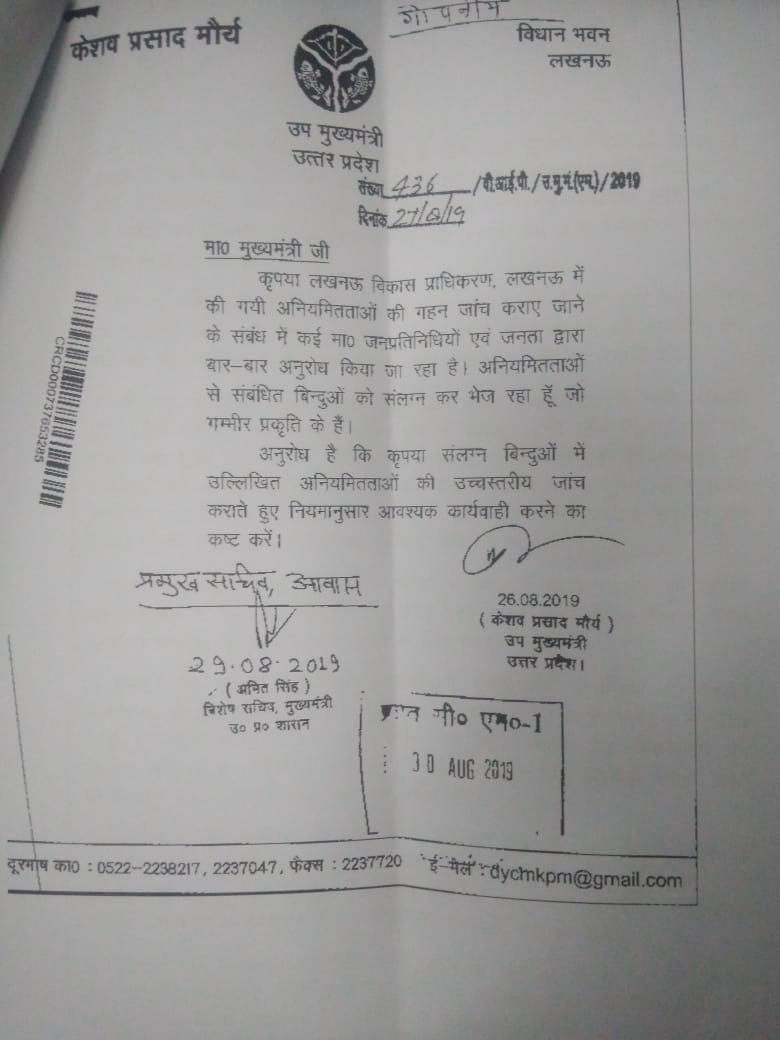 गोपनीय
केशव प्रसाद मौर्य
विधान भवन
लखनऊ
उप मुख्यमंत्री
उत्तर प्रदेश
संख्या 436 /वी.आई.पी./उ.मु.मं.(एम.)/2019
दिनांक 27/8/19
मा0 मुख्यमंत्री जी
कृपया लखनऊ विकास प्राधिकरण, लखनऊ में
की गयी अनियमितताओं की गहन जांच कराए जाने
के संबंध में कई मा0 जनप्रतिनिधियों एवं जनता द्वारा
बार-बार अनुरोध किया जा रहा है। अनियमितताओं
से संबंधित बिन्दुओं को संलग्न कर भेज रहा हूँ जो
गम्भीर प्रकृति के हैं।
अनुरोध है कि कृपया संलग्न बिन्दुओं में
उल्लिखित अनियमितताओं की उच्चस्तरीय जांच
कराते हुए नियमानुसार आवश्यक कार्यवाही करने का
कष्ट करें।
CRCD000737653285
26.08.2019
( केशव प्रसाद मौर्य )
उप मुख्यमंत्री
उत्तर प्रदेश।
प्रमुख सचिव, आवास
29.08.2019
( अमित सिंह )
विशेष सचिव, मुख्यमंत्री
उ० प्र० शासन
सी० एम०-1
30 AUG 2019
दूरभाष का0 : 0522-2238217, 2237047, फैक्स : 2237720 ई-मेल : dychmkpm@gmail.com